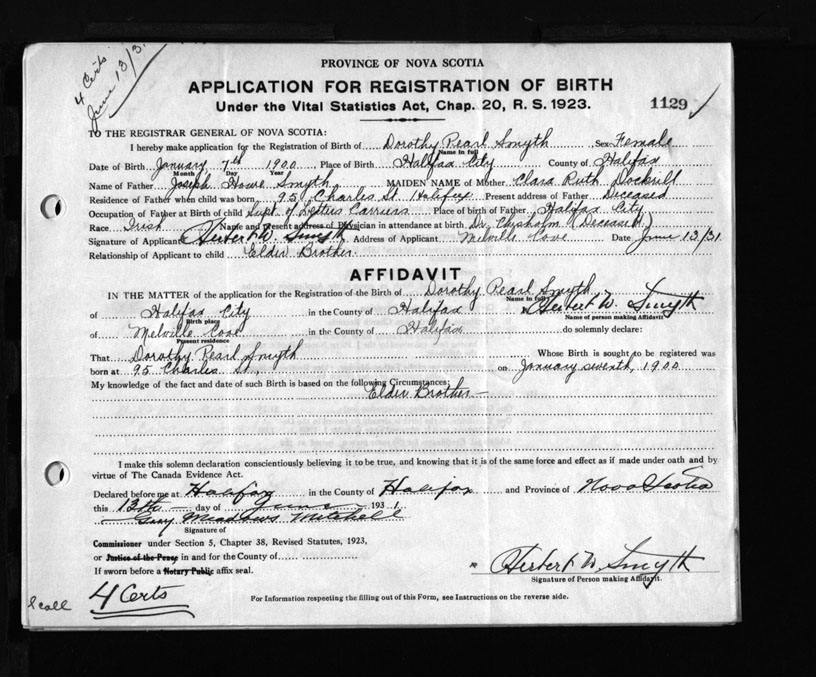 4 Certs
June 13/31
PROVINCE OF NOVA SCOTIA
APPLICATION FOR REGISTRATION OF BIRTH
Under the Vital Statistics Act, Chap. 20, R. S. 1923.
1129 ✓
TO THE REGISTRAR GENERAL OF NOVA SCOTIA:
I hereby make application for the Registration of Birth of Dorothy Pearl Smyth Sex Female
Name in full
Date of Birth January 7th 1900 Place of Birth Halifax City County of Halifax
Month Day Year
Name of Father Joseph Howe Smyth MAIDEN NAME of Mother Clara Ruth Dockrill
Residence of Father when child was born 95 Charles St Halifax Present address of Father Deceased
Occupation of Father at Birth of child Supt. of Letters Carriers Place of birth of Father Halifax City
Race Irish Name and present address of Physician in attendance at birth Dr. Chisholm (Deceased)
Signature of Applicant Herbert W. Smyth Address of Applicant Melville Cove Date June 13/31
Relationship of Applicant to child Elder Brother
AFFIDAVIT
IN THE MATTER of the application for the Registration of the Birth of Dorothy Pearl Smyth
Name in full
of Halifax City in the County of Halifax Herbert W. Smyth
Birth place Name of person making Affidavit
of Melville Cove in the County of Halifax do solemnly declare:
Present residence
That Dorothy Pearl Smyth Whose Birth is sought to be registered was
born at 95 Charles St., on January seventh, 1900
My knowledge of the fact and date of such Birth is based on the following Circumstances:
Elder Brother
I make this solemn declaration conscientiously believing it to be true, and knowing that it is of the same force and effect as if made under oath and by
virtue of The Canada Evidence Act.
Declared before me at Halifax in the County of Halifax and Province of Nova Scotia
this 13th day of June 1931.
Meadows Mitchell
Signature of
Commissioner under Section 5, Chapter 38, Revised Statutes, 1923,
or Justice of the Peace in and for the County of
If sworn before a Notary Public affix seal.
Herbert W. Smyth
Signature of Person making Affidavit.
4 Certs
For Information respecting the filling out of this Form, see Instructions on the reverse side.